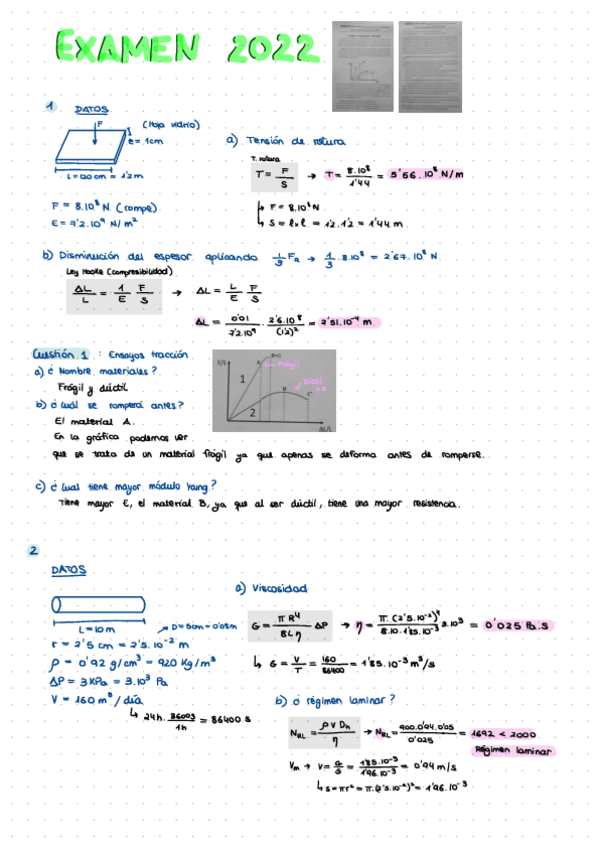 EXAMEN 2022
1 DATOS
F
(Hoja vidrio)
e = 1cm
L = 120 cm = 1'2 m
F = 8.10⁸ N (rompe)
E = 7'2.10⁹ N/m²
a) Tensión de rotura
T. rotura
T = F/S → T = 8.10⁸/1'44 = 5'56.10⁸ N/m
↳ F = 8.10⁸ N
↳ S = l×l = 1'2.1'2 = 1'44 m
b) Disminución del espesor aplicando 1/3 F_R → 1/3 . 8.10⁸ = 2'67.10⁸ N
Ley Hooke (compresibilidad)
ΔL/L = 1/E F/S → ΔL = L/E F/S
ΔL = 0'01/7'2.10⁹ . 2'6.10⁸/(1'2)² = 2'51.10⁻⁴ m
Cuestión 1 : Ensayos tracción
a) ¿ Nombre materiales ?
Frágil y dúctil
b) ¿ Cuál se romperá antes ?
El material A.
En la gráfica podemos ver
que se trata de un material frágil ya que apenas se deforma antes de romperse.
F/S
A
B=C
Frágil
1
B'
Dúctil
C'
2
ΔL/L
c) ¿ Cual tiene mayor módulo Young ?
Tiene mayor E, el material B, ya que al ser dúctil, tiene una mayor resistencia.
2
DATOS
L = 10 m
→ D = 5cm = 0'05m
r = 2'5 cm = 2'5.10⁻² m
ρ = 0'92 g/cm³ = 920 Kg/m³
ΔP = 3 KPa = 3.10³ Pa
V = 160 m³ / día
↳ 24h . 3600s/1h = 86400 s
a) Viscosidad
G = πR⁴/8Lη ΔP → η = π.(2'5.10⁻²)⁴/8.10.1'85.10⁻³ 3.10³ = 0'025 Pa.s
↳ G = V/T = 160/86400 = 1'85.10⁻³ m³/s
b) ¿ régimen laminar ?
N_RL = ρ V D_h/η → N_RL = 900.0'94.0'05/0'025 = 1692 < 2000
Régimen laminar
V_m → V = G/S = 1'85.10⁻³/1'96.10⁻³ = 0'94 m/s
↳ S = πr² = π.(2'5.10⁻²)² = 1'96.10⁻³